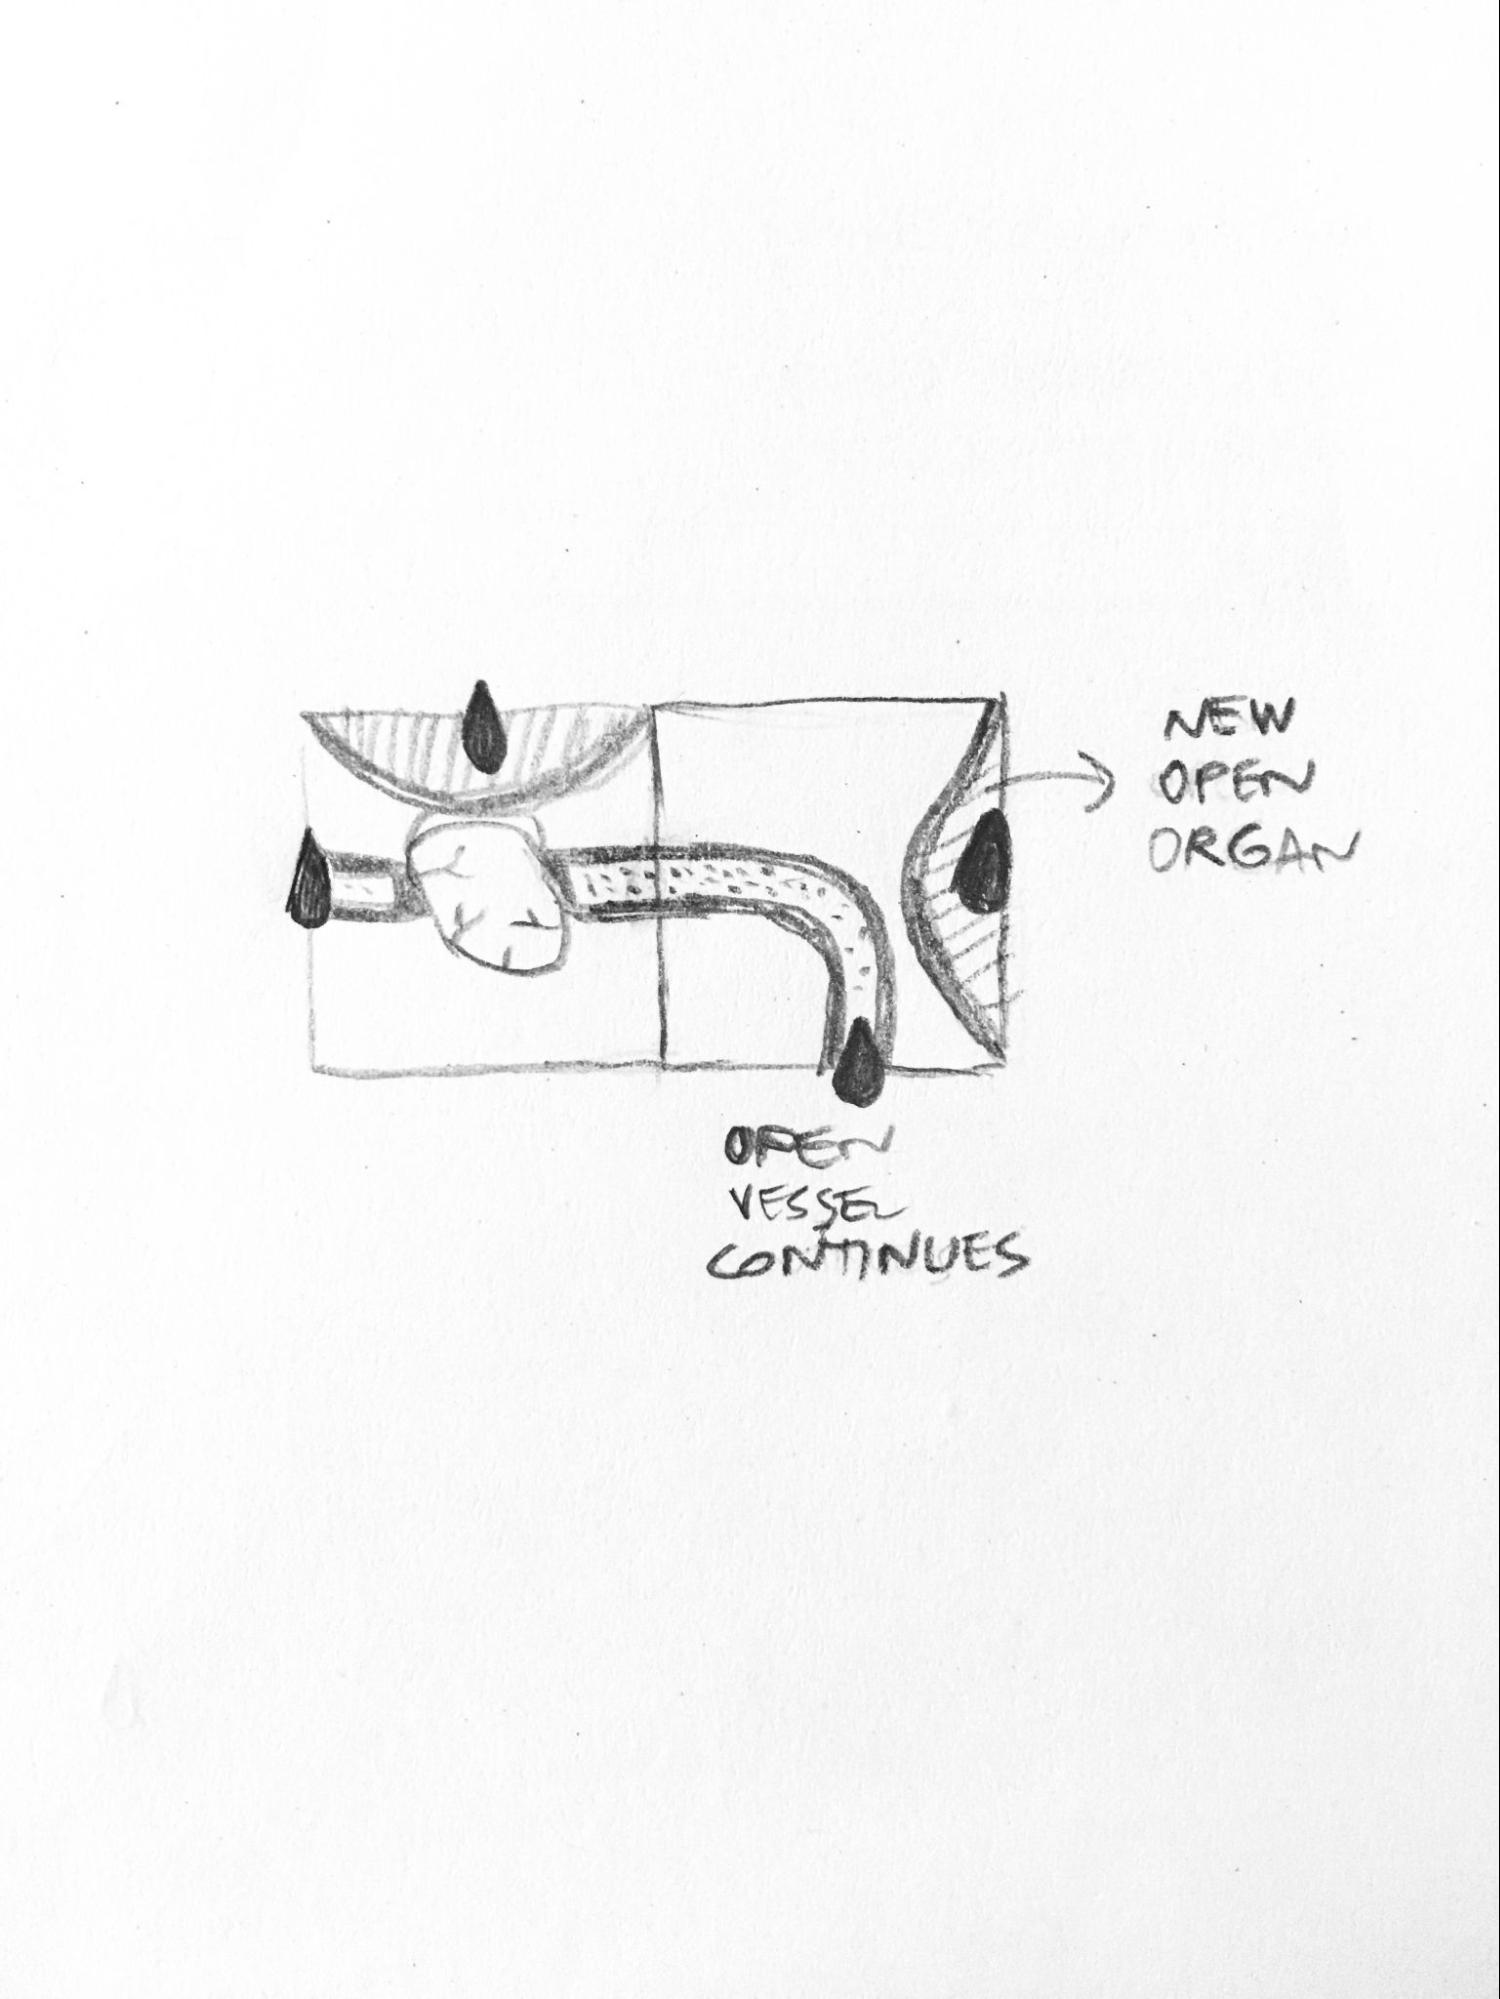 NEW
OPEN
ORGAN
OPEN
VESSEL
CONTINUES